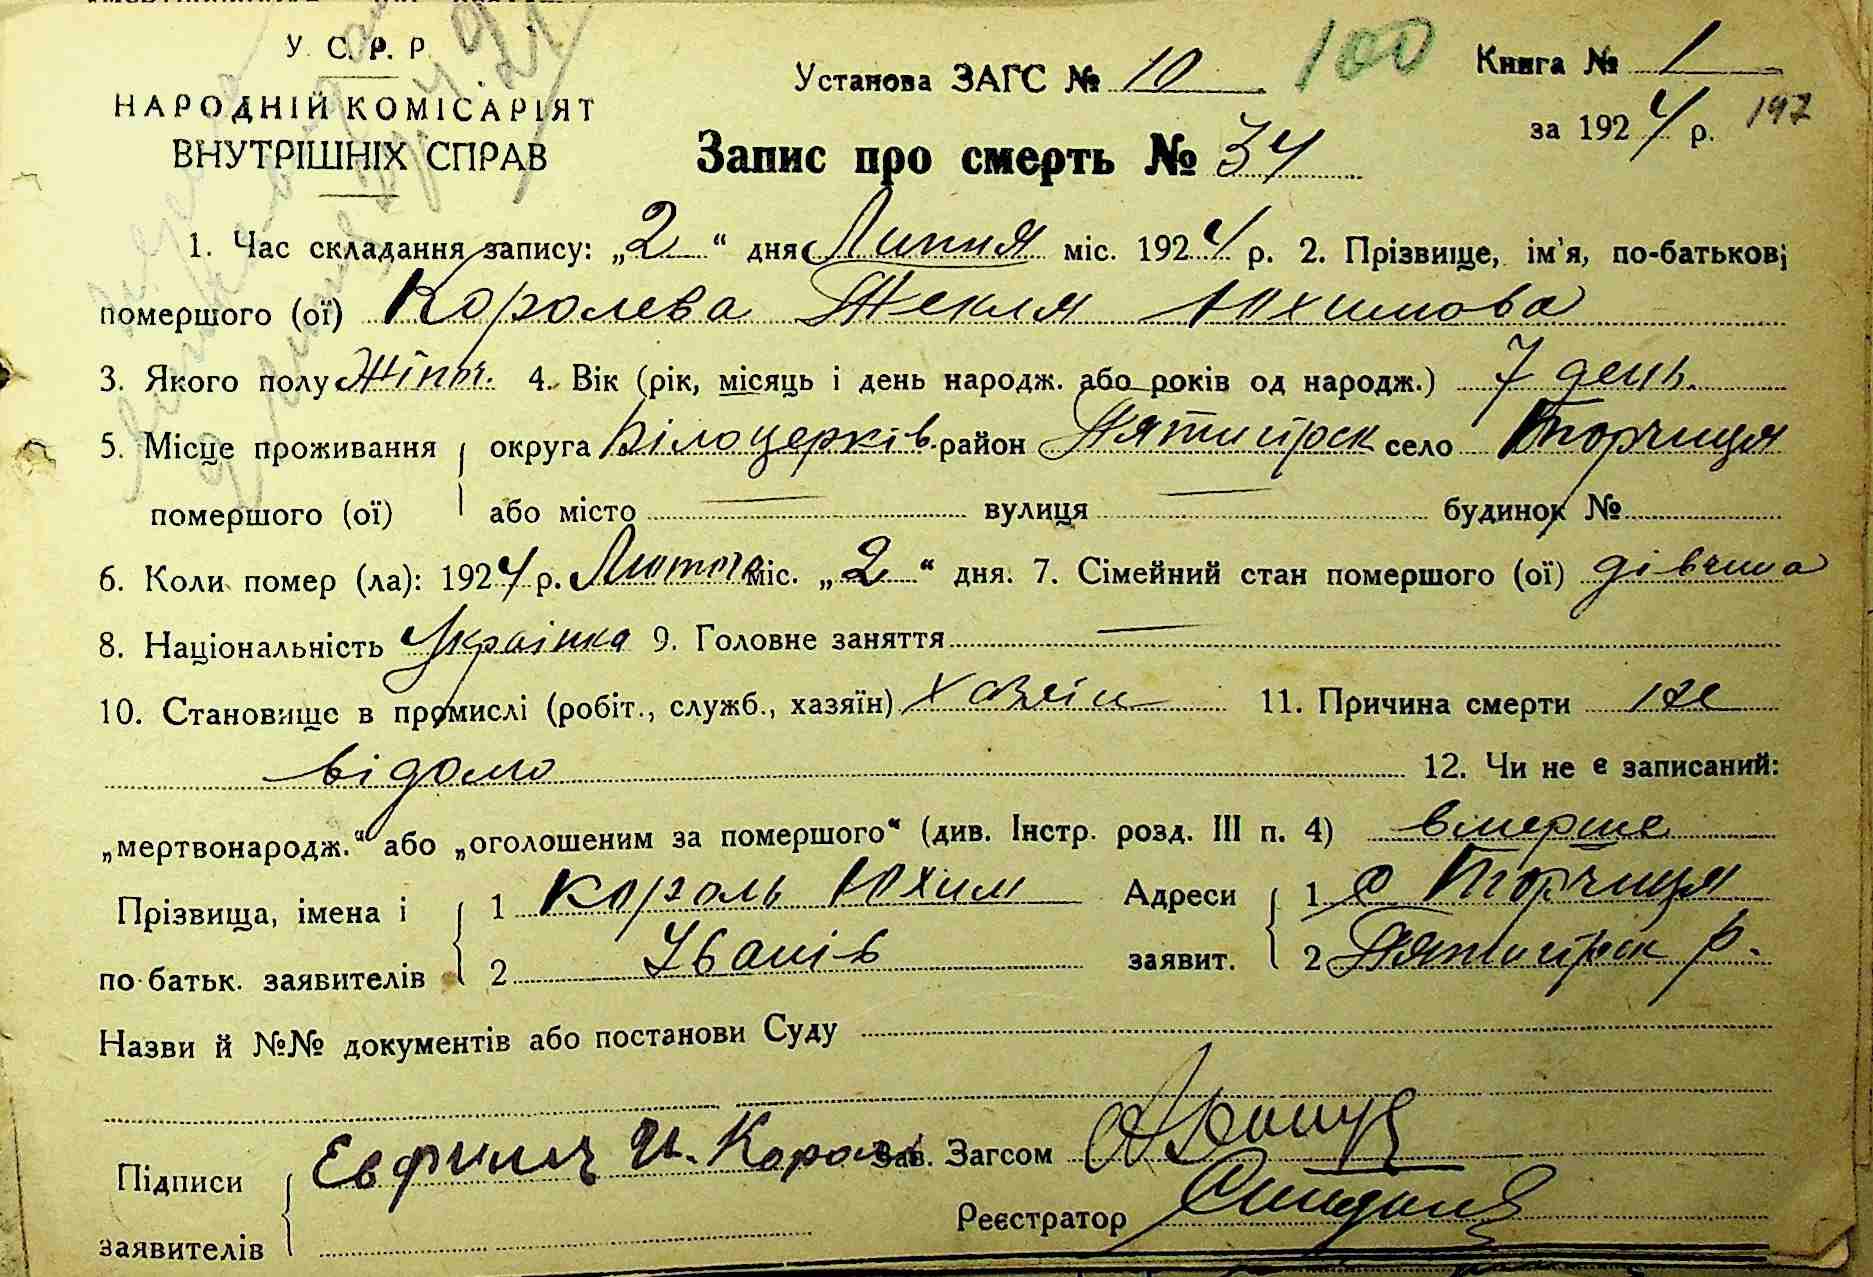 У. С. Р. Р.
НАРОДНІЙ КОМІСАРІЯТ
ВНУТРІШНІХ СПРАВ
Установа ЗАГС № 10
100
Книга № 1
за 1924 р.
197
Запис про смерть № 34
1. Час складання запису: „2“ дня Липня міс. 1924 р. 2. Прізвище, ім'я, по-батькові
помершого (ої) Королева Текля Юхимова
3. Якого полу жіноч. 4. Вік (рік, місяць і день народж. або років од народж.) 7 день.
5. Місце проживання округа Білоцерків. район Пятигірск село Торчиця
помершого (ої) або місто — вулиця — будинок №
6. Коли помер (ла): 1924 р. Лютого міс. „2“ дня. 7. Сімейний стан помершого (ої) дівчина
8. Національність Українка 9. Головне заняття —
10. Становище в промислі (робіт., служб., хазяїн) хазяін 11. Причина смерти не
відомо 12. Чи не є записаний:
„мертвонародж.“ або „оголошеним за помершого“ (див. Інстр. розд. III п. 4) вмерше
Прізвища, імена і 1 Король Юхим Адреси 1 с Торчиця
по-батьк. заявителів 2 Іванів заявит. 2 Пятигірск р.
Назви й №№ документів або постанови Суду
Підписи Евфим И. Король Зав. Загсом
Реєстратор
заявителів